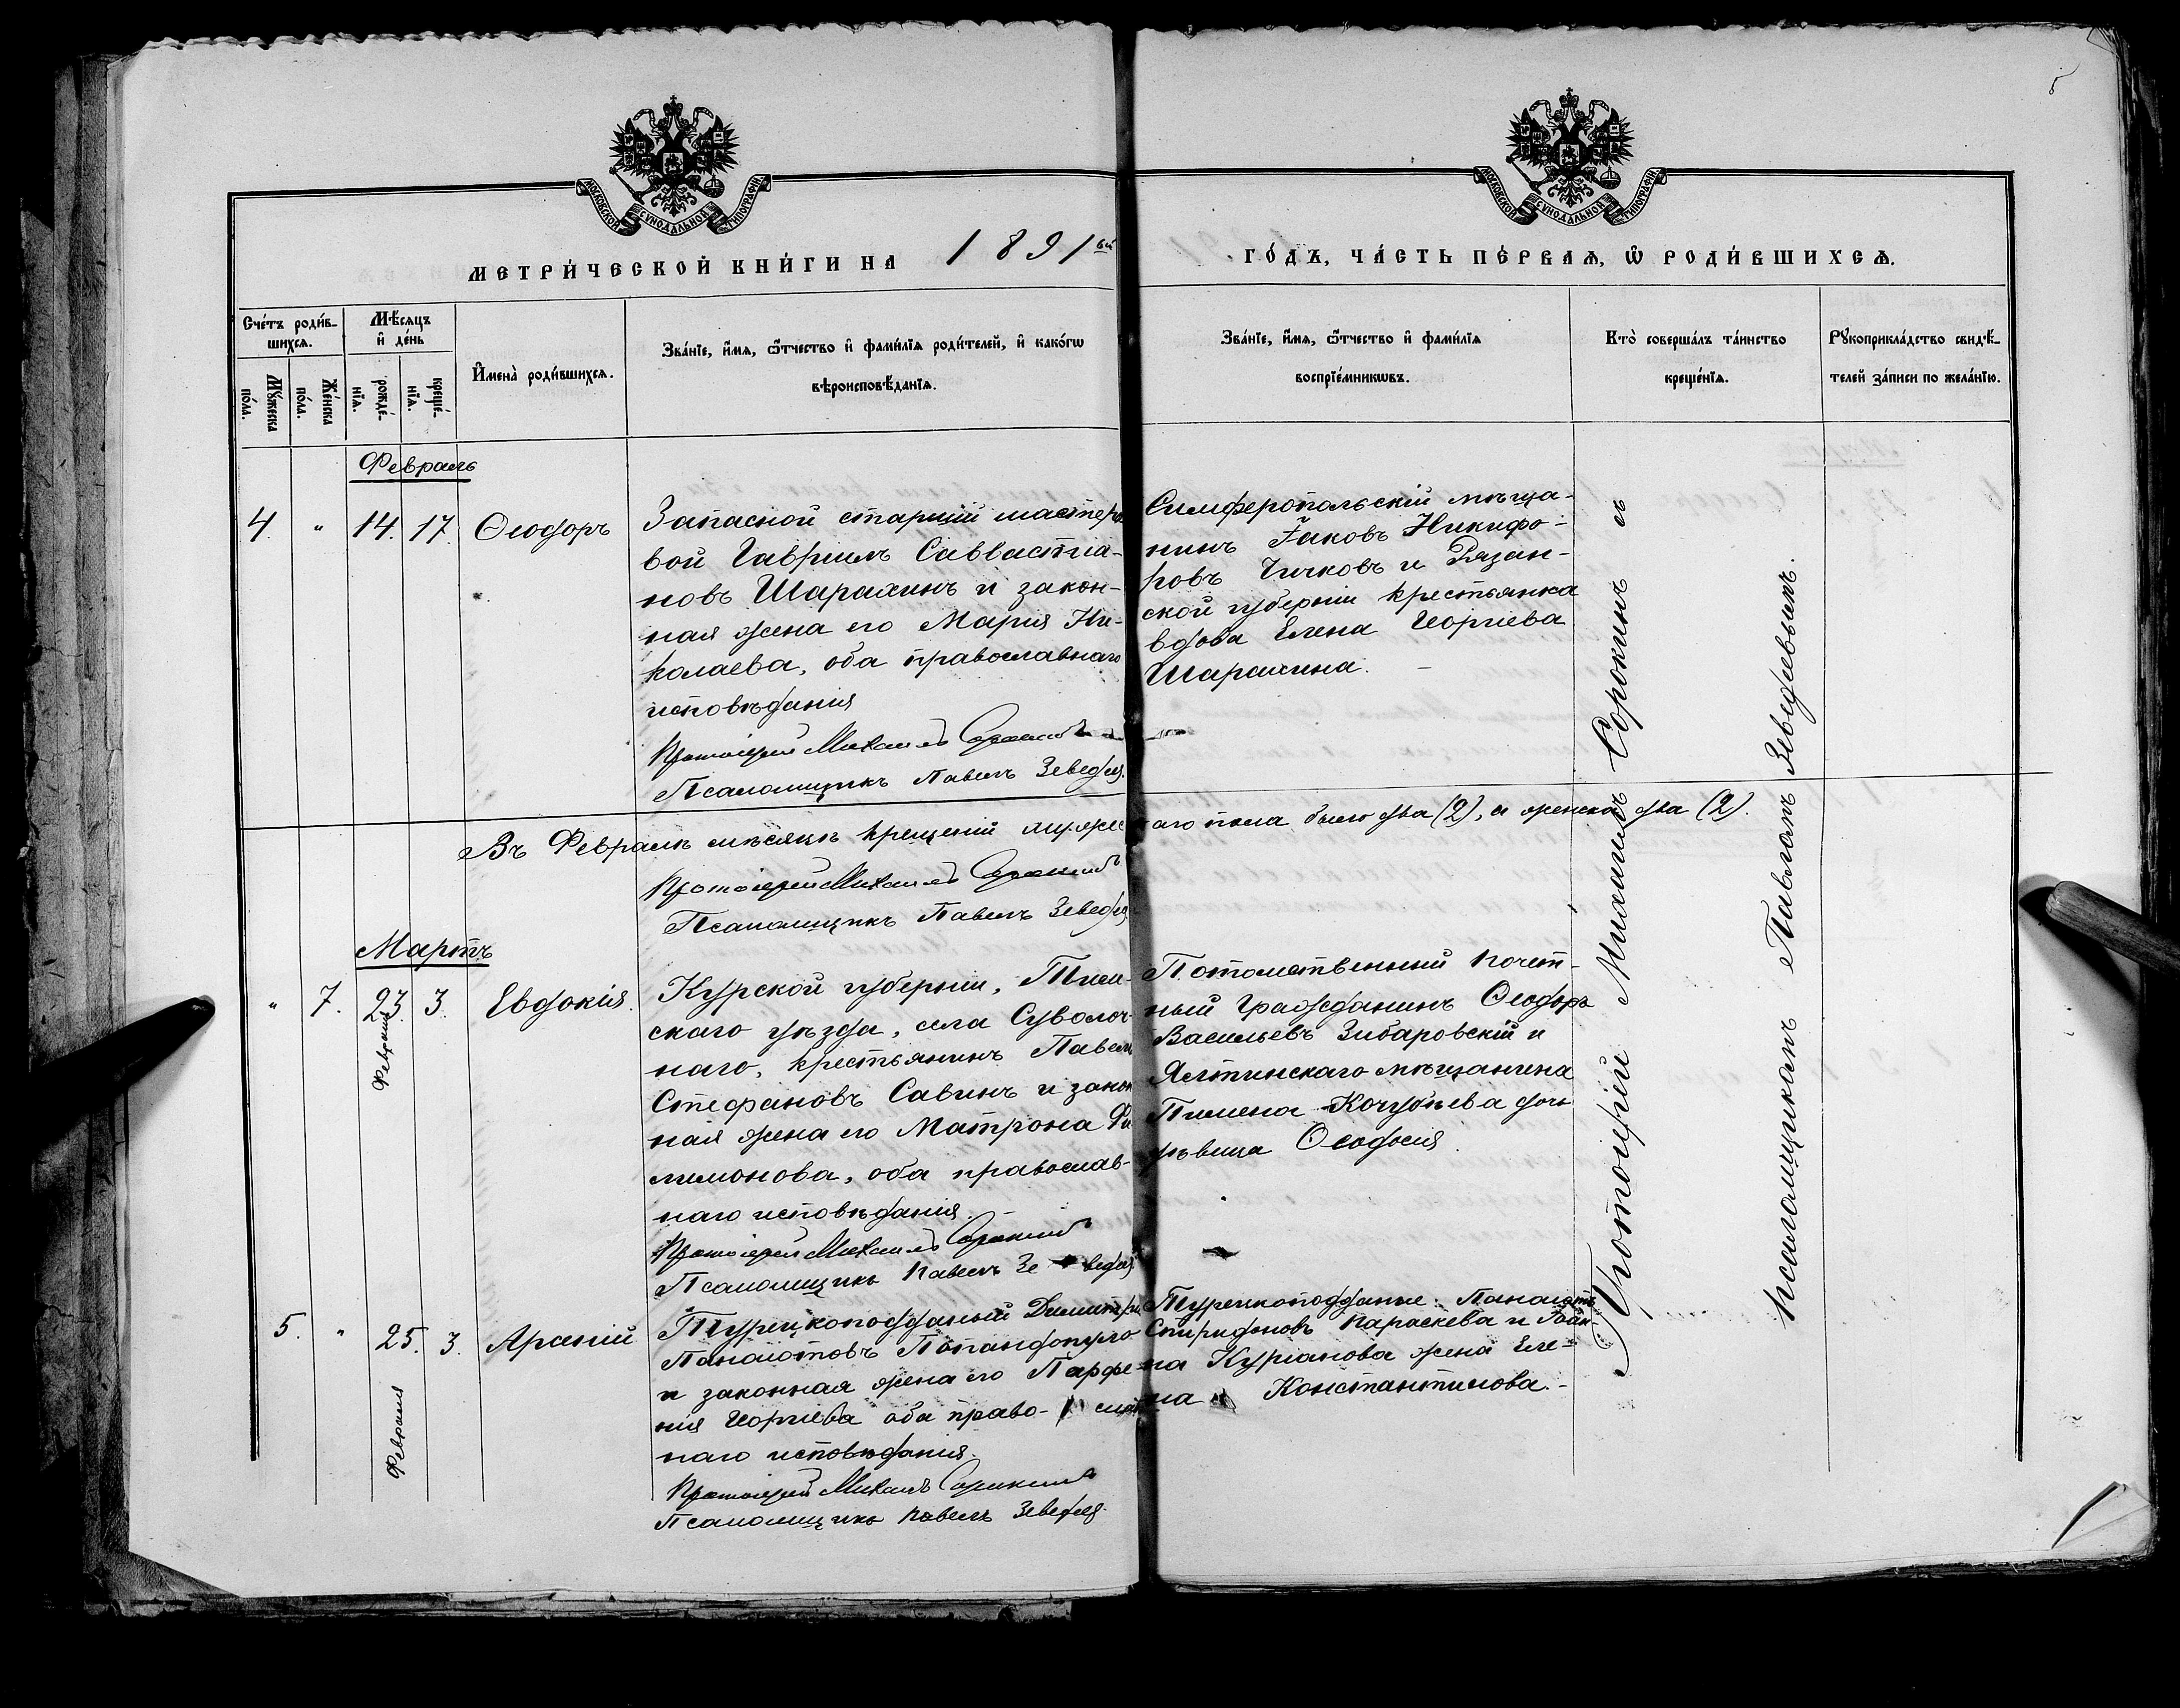 5
МОСКОВСКОЙ СУНОДАЛЬНОЙ ТИПОГРАФІИ
МОСКОВСКОЙ СУНОДАЛЬНОЙ ТИПОГРАФІИ
МЕТРИ́ЧЕСКОЙ КНИ́ГИ НА 1891ый
ГО́ДЪ, ЧА́СТЬ ПЕ́РВАѦ, Ѽ РОДИ́ВШИХСѦ.
Сче́тъ роди́в-
шихсѧ.
Мꙋ́жеска
по́ла.
Же́нска
по́ла.
Мѣ́сѧцъ
и҆ де́нь
рожде́-
нїѧ.
креще́-
нїѧ.
И҆мена̀ роди́вшихсѧ.
Зва́нїе, и҆́мѧ, ѻ҆́тчество и҆ фами́лїѧ роди́телей, и҆ како́гѡ
вѣроисповѣ́данїѧ.
Зва́нїе, и҆́мѧ, ѻ҆́тчество и҆ фами́лїѧ
воспрїе́мникѡвъ.
Кто̀ соверша́лъ та́инство
креще́нїѧ.
Рꙋкоприкла́дство свидѣ́-
телей за́писи по жела́нїю.
Февраль
4. " 14. 17. Ѳеодоръ
Запасной старшій мастеро
вой Гавріилъ Савватіа-
новъ Шарахинъ и закон-
ная жена его Марія Ни-
колаева, оба православнаго
исповѣданія
Протоіерей Михаилъ Сорокинъ
Псаломщикъ Павелъ Зеведея.
Симферопольскій мѣща-
нинъ Іаковъ Никифо-
ровъ Чичковъ и Рязан-
ской губерніи крестьянка
вдова Елена Георгіева
Шарахина. -
Въ Февралѣ мѣсяцѣ крещеній мужескаго пола было два (2), а женска два (2).
Протоіерей Михаилъ Сорокинъ
Псаломщикъ Павелъ Зеведея
Мартъ
" 7. 23. 3. Евдокія.
Февраля
Курской губерніи, Тим-
скаго уѣзда, села Суволоч-
наго, крестьянинъ Павелъ
Стефановъ Савинъ и закон
ная жена его Матрона Фи
лимонова, оба православ-
наго исповѣданія.
Протоіерей Михаилъ Сорокинъ
Псаломщикъ Павелъ Зеведея
Потомственный почет-
ный гражданинъ Ѳеодоръ
Васильевъ Зибаровскій и
Ялтинскаго мѣщанина
Пимена Кочубѣева дочь
дѣвица Ѳеодосія.
5. " 25. 3. Арсеній
Февраля
Турецкоподданый Димитрій
Панаіотовъ Попандопуло
и законная жена его Парфе-
нія Георгіева оба право-слав
наго исповѣданія.
Протоіерей Михаилъ Сорокинъ
Псаломщикъ Павелъ Зеведея.
Турецкоподданые: Панаіотъ
Спиридоновъ Параскева и Іоан-
на Куріанова жена Еле-
на Константинова. -
Протоіерей Михаилъ Сорокинъ съ
псаломщикомъ Павломъ Зеведеевымъ.